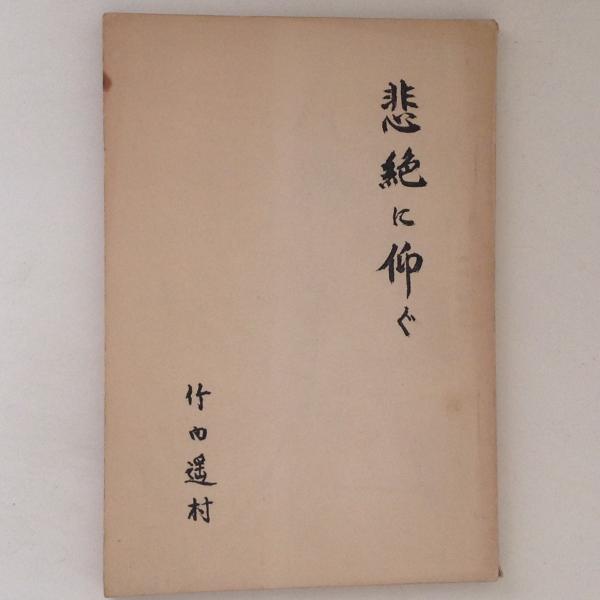 悲絶に仰ぐ
竹内遥村